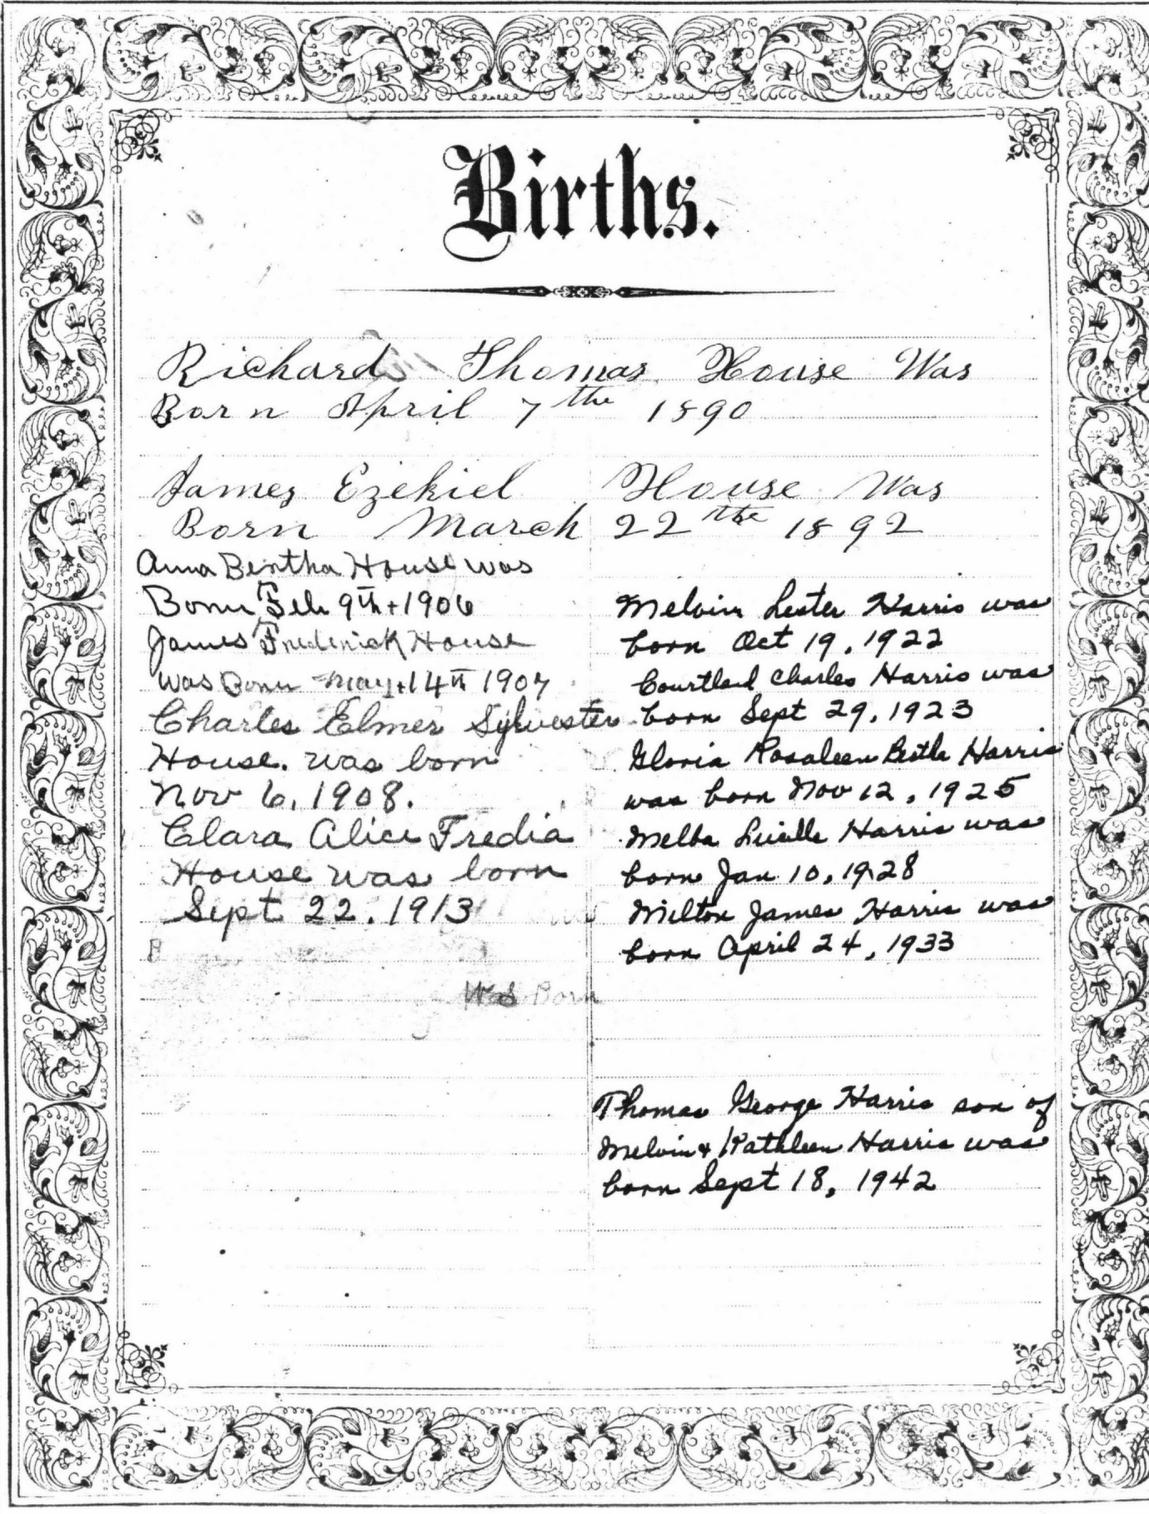 Births.
Richard Thomas House Was
Born April 7the 1890
James Ezekiel House Was
Born March 22the 1892
Anna Bertha House was
Born Feb 9th 1906
James Frederick House
was Born May 14th 1907
Charles Elmer Sylvester
House. was born
Nov 6, 1908.
Clara Alice Fredia
House was born
Sept 22. 1913
Was Born
Melvin Lester Harris was
born Oct 19, 1922
Courtland Charles Harris was
born Sept 29, 1923
Gloria Rosaleen Harris
was born Nov 12, 1925
Melba Lucille Harris was
born Jan 10, 1928
Milton James Harris was
born April 24, 1933
Thomas George Harris son of
Melvin & Kathleen Harris was
born Sept 18, 1942